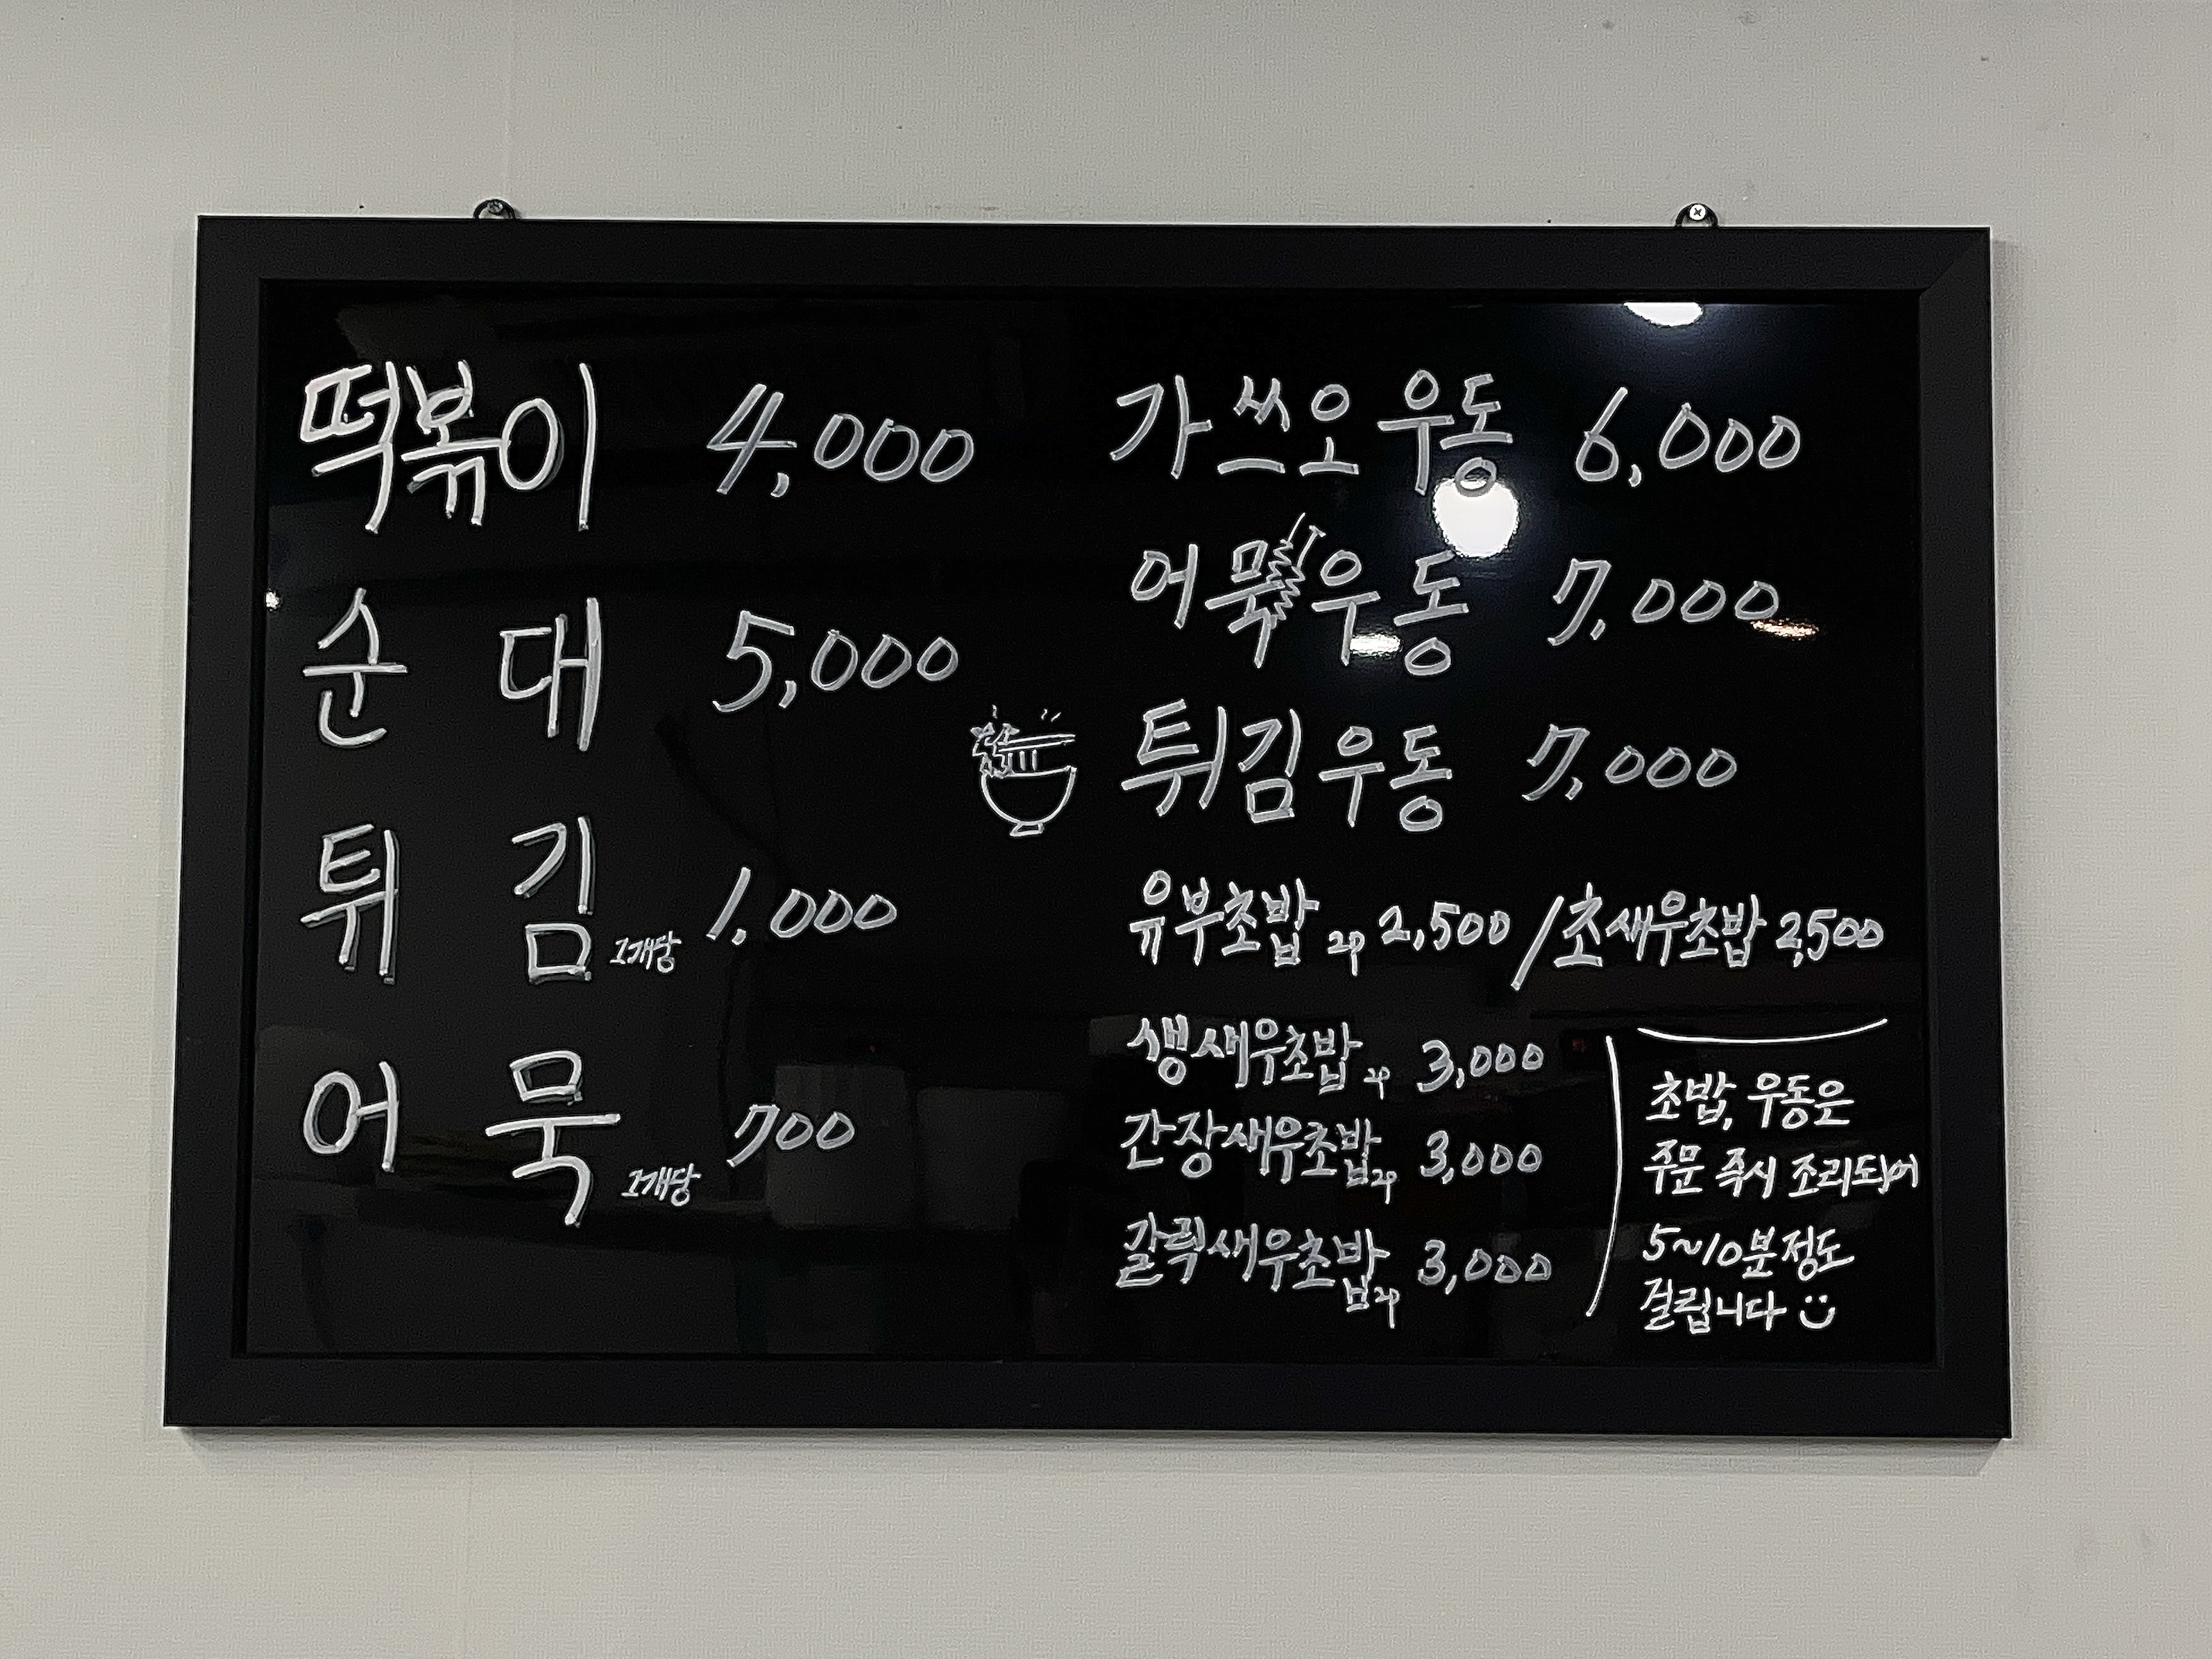 떡볶이 4,000
순대 5,000
튀김 1개당 1,000
어묵 1개당 700
가쓰오우동 6,000
어묵우동 7,000
튀김우동 7,000
유부초밥 2p 2,500 / 초새우초밥 2,500
생새우초밥 2p 3,000
간장새우초밥 2p 3,000
갈릭새우초밥 2p 3,000
초밥, 우동은
주문 즉시 조리되어
5~10분정도
걸립니다